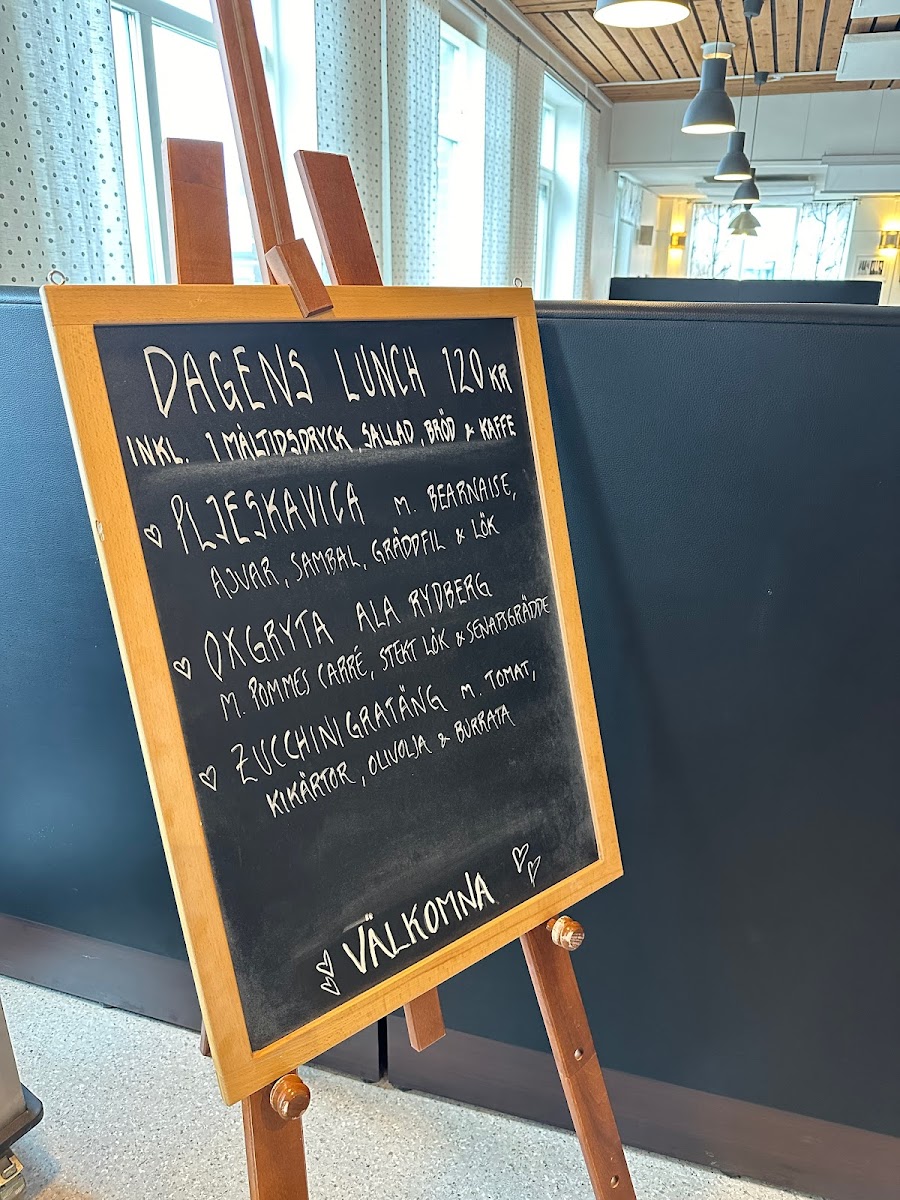 DAGENS LUNCH 120 KR
INKL. 1 MÅLTIDSDRYCK, SALLAD, BRÖD & KAFFE
PLJESKAVICA M. BEARNAISE,
AJVAR, SAMBAL, GRÄDDFIL & LÖK
OXGRYTA ALA RYDBERG
M. POMMES CARRÉ, STEKT LÖK & SENAPSGRÄDDE
ZUCCHINIGRATÄNG M. TOMAT,
KIKÄRTOR, OLIVOLJA & BURRATA
VÄLKOMNA